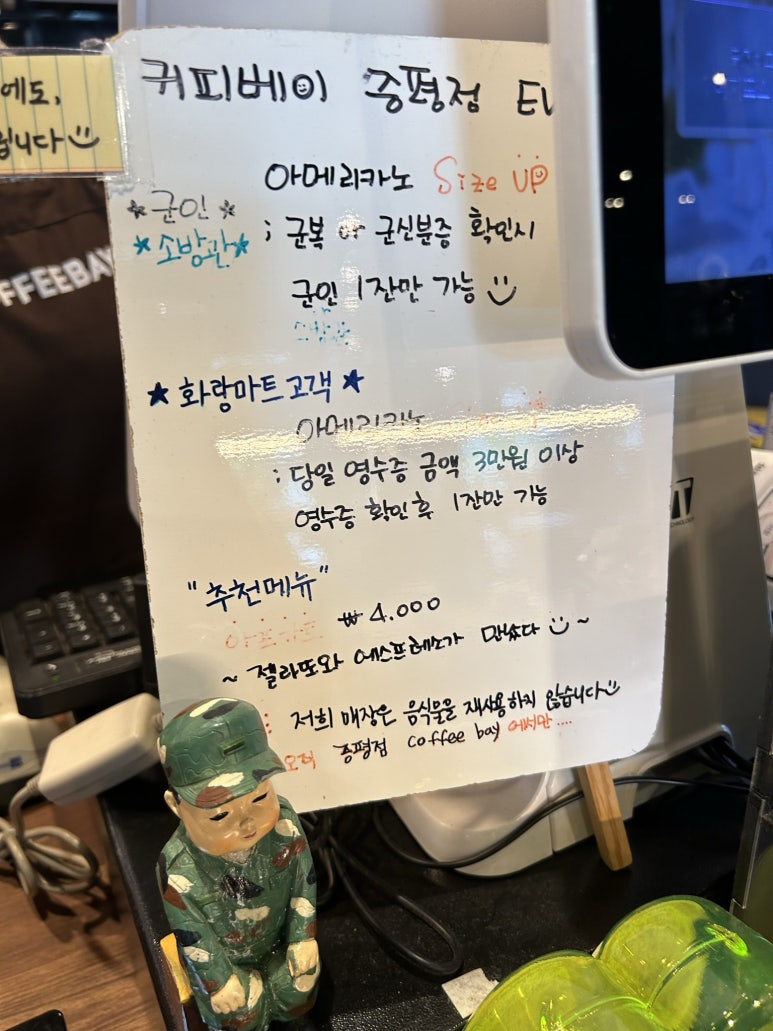 에도,
니다
FFEEBAY
커피베이 증평점 EV
아메리카노 Size UP
★군인★
★소방관★
; 군복 or 군신분증 확인시
군인 1잔만 가능
소방관
★화랑마트고객★
아메리카노
; 당일 영수증 금액 3만원 이상
영수증 확인 후 1잔만 가능
"추천메뉴"
아포가토 ₩4.000
~ 젤라또와 에스프레소가 만났다 ~
: 저희 매장은 음식물을 재사용하지 않습니다
오직 증평점 coffee bay 에서만....